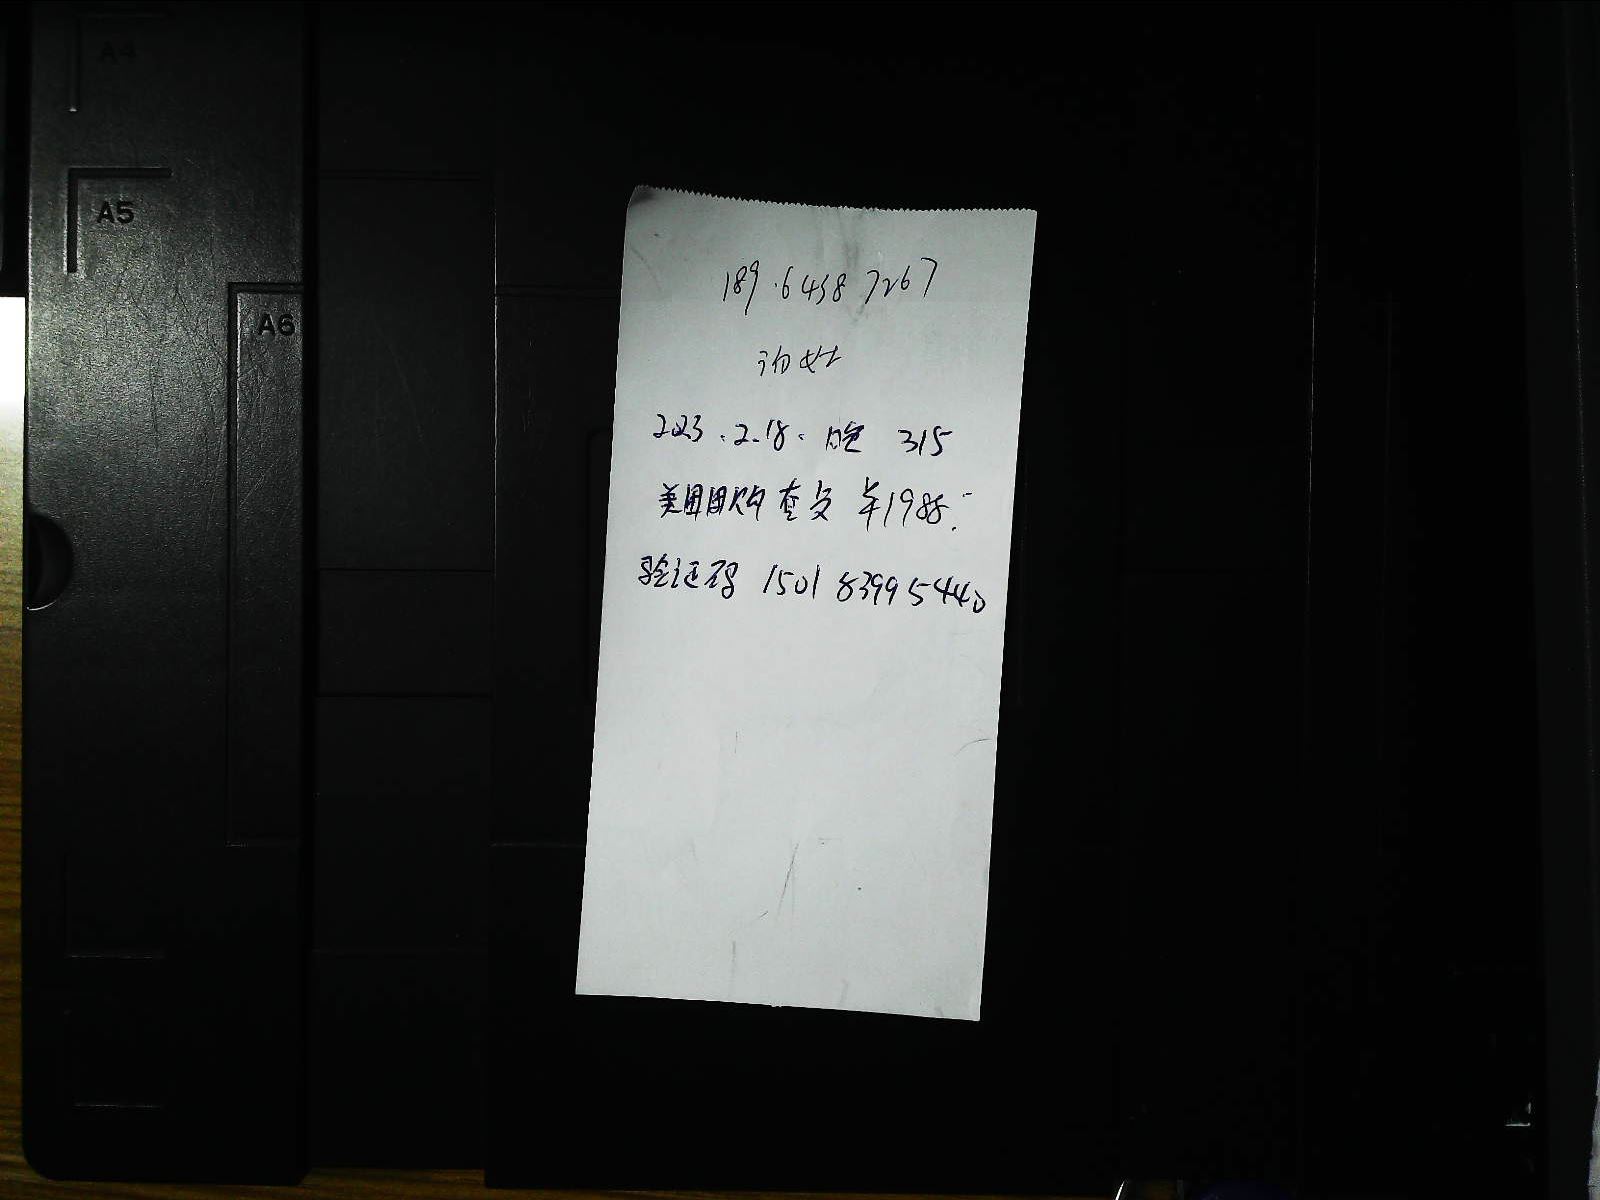 A4
A5
A6
189.6458 7267
2023.2.18. 晚 315
美团团购 套 1988.
验证码 1501 8399 5440